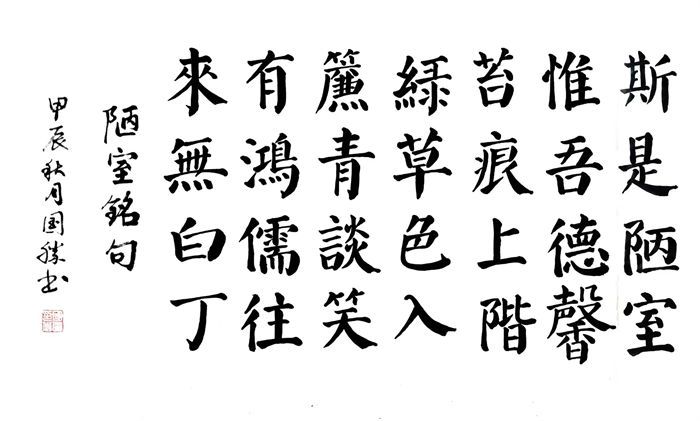 斯是陋室
惟吾德馨
苔痕上階
綠草色入
簾青談笑
有鴻儒往
來無白丁
陋室銘句
甲辰秋月国勝书